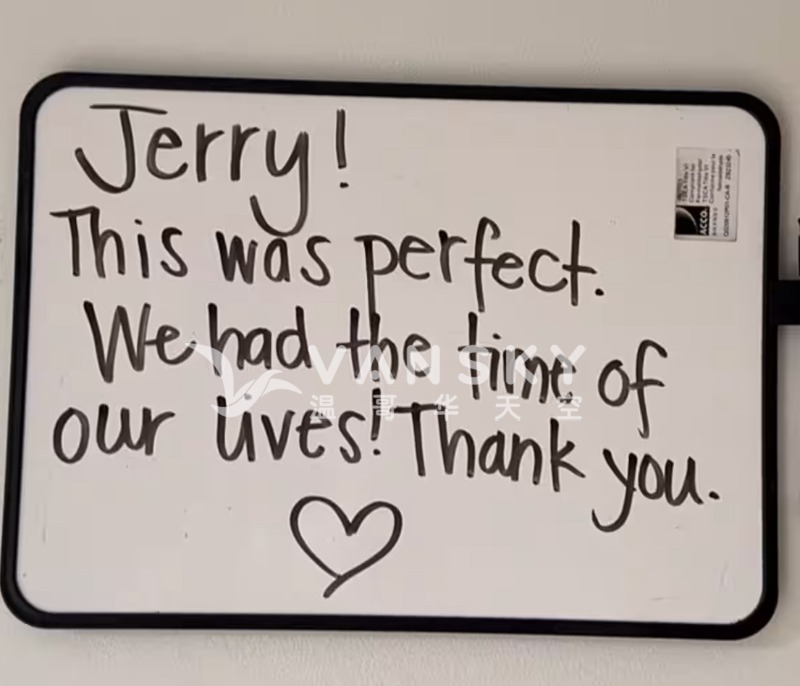 Jerry!
This was perfect.
We had the time of
our lives! Thank you.
VANSKY
温哥华天空
ACCO.